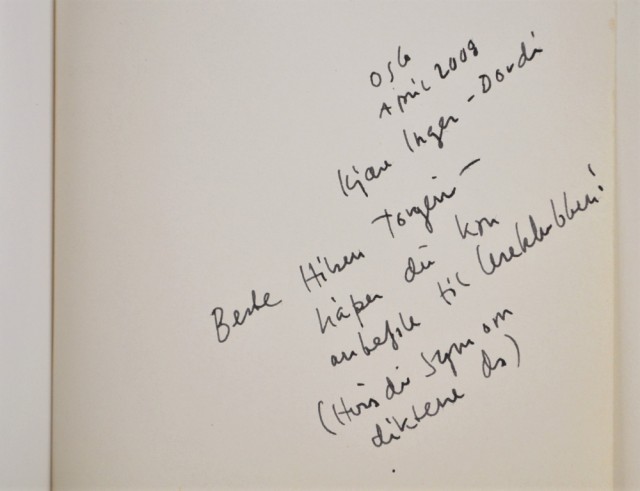 Oslo
April 2008
Kjære Inger-Dordi
Beste Hilsen Torgeir –
håper du kan
anbefale til leseklubben!
(Hvis du syns om
diktene da)